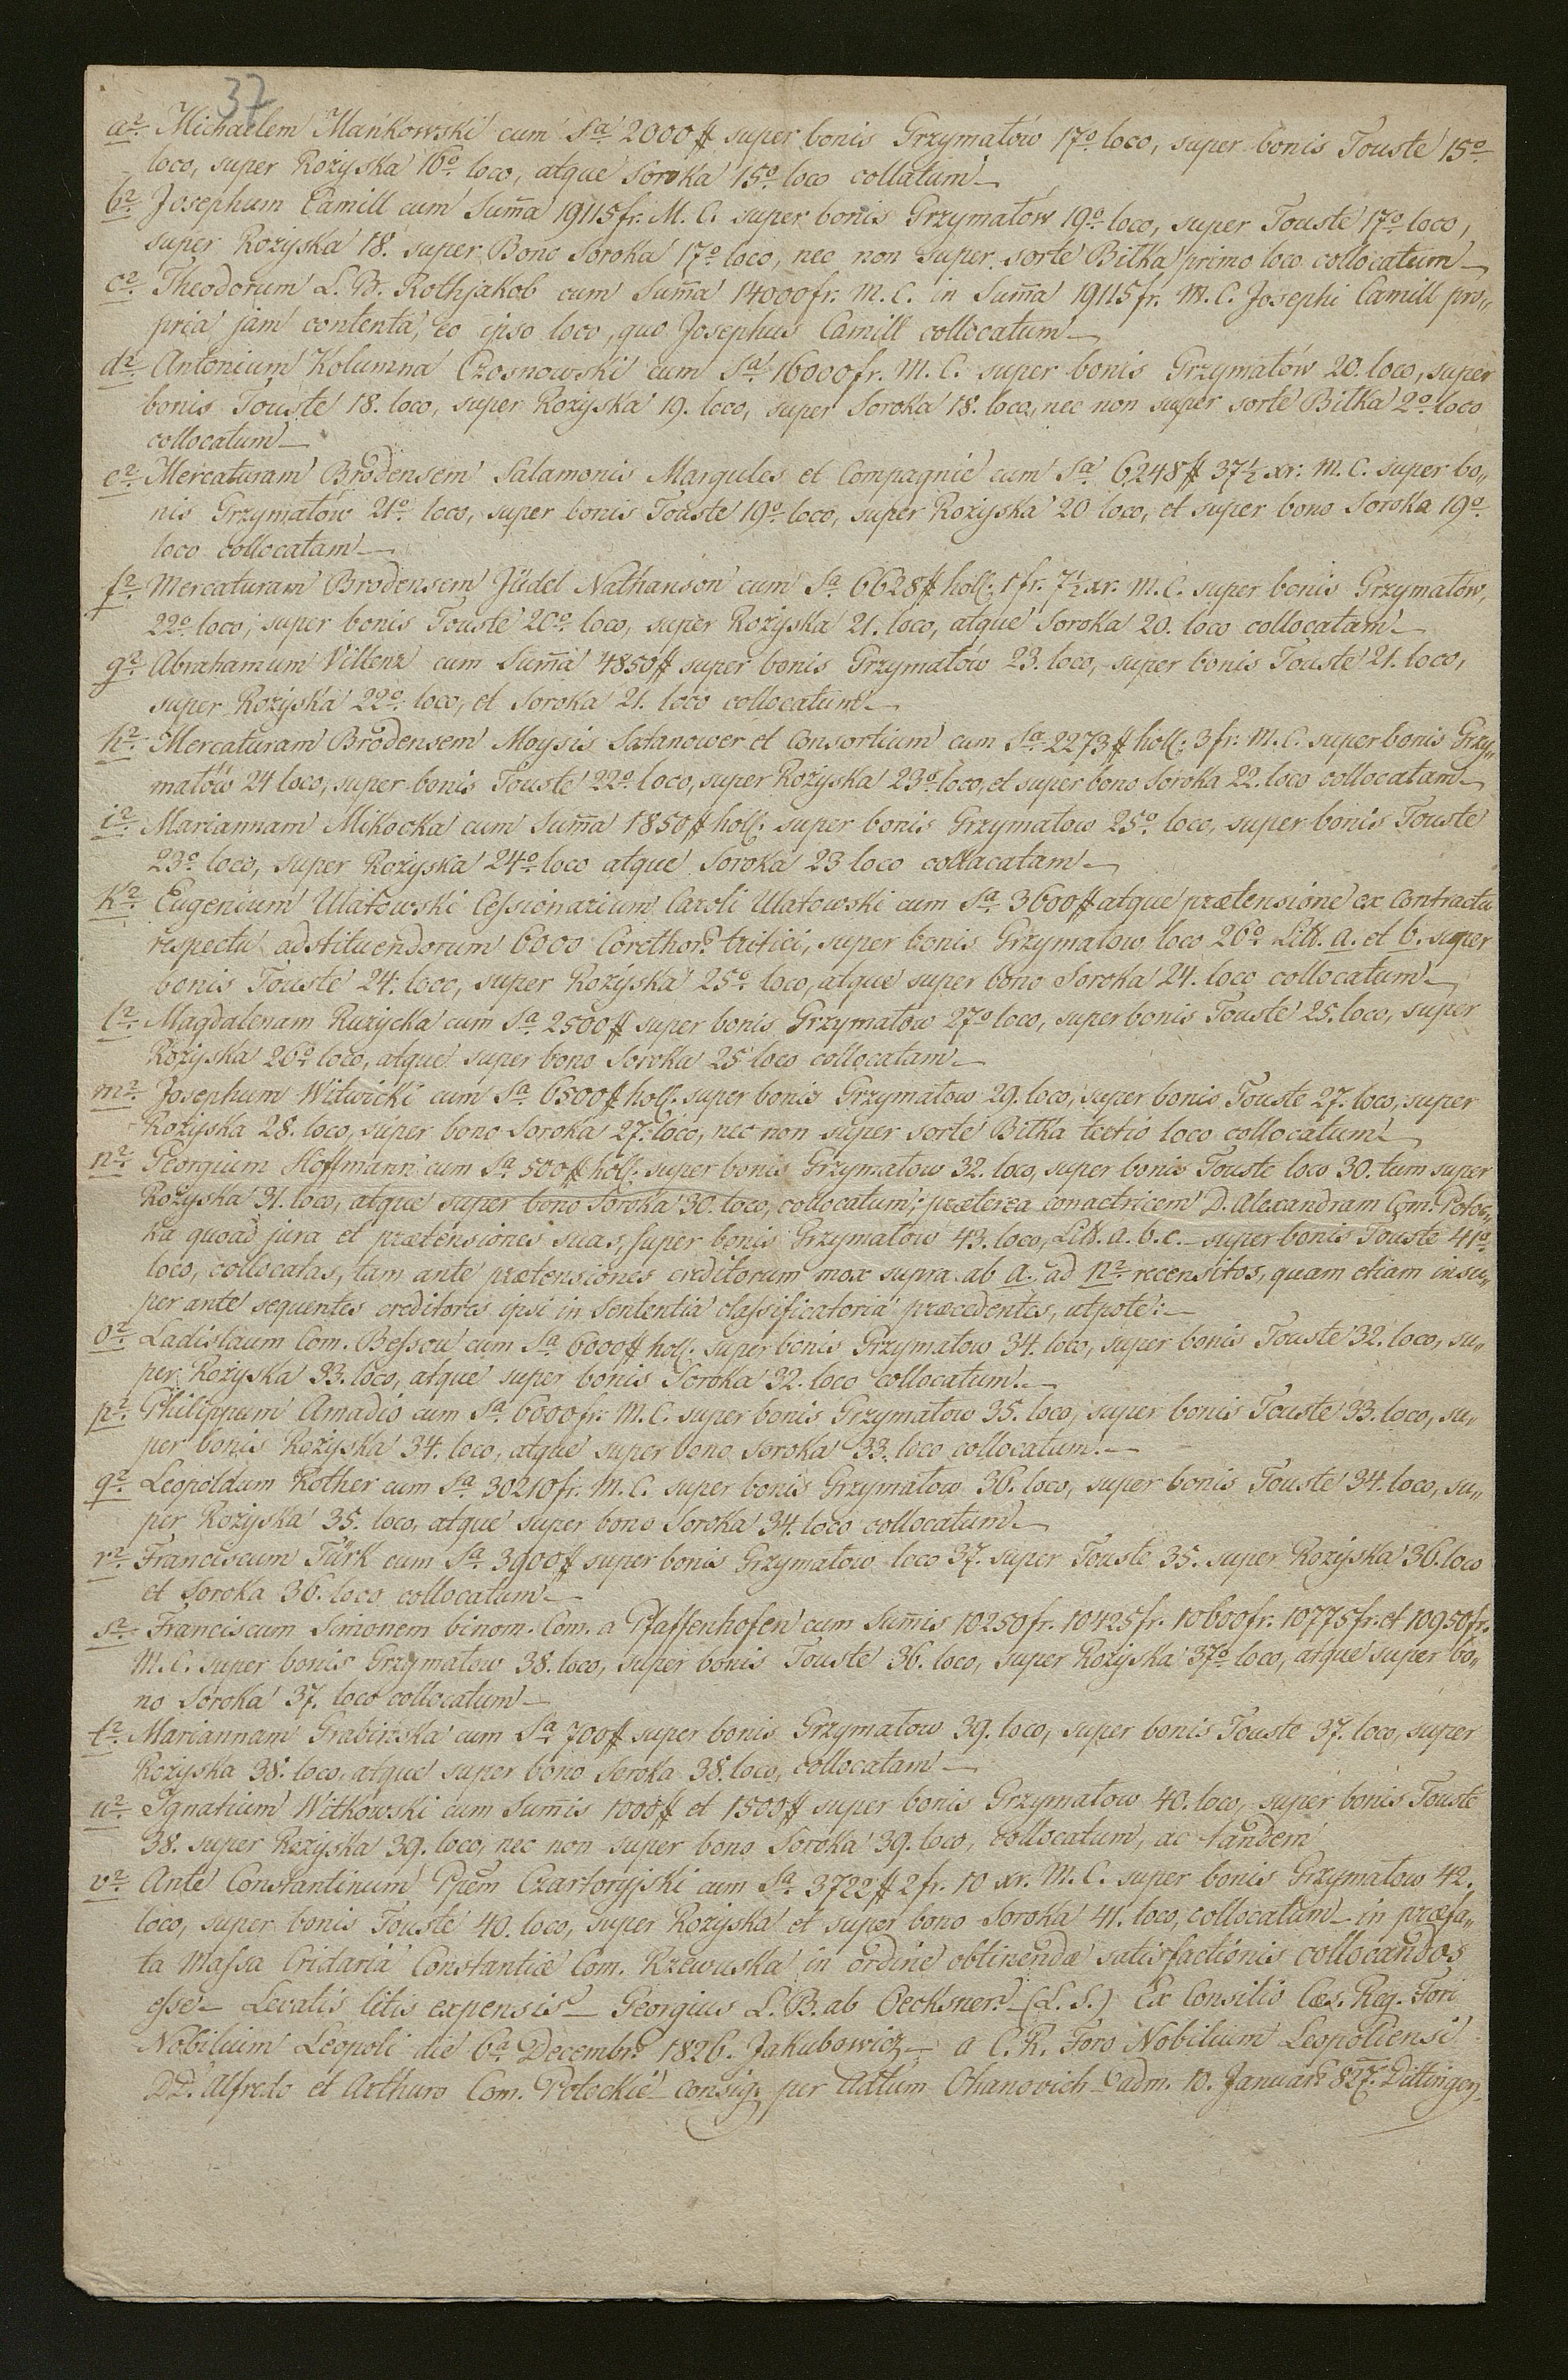 37
a2. Michaelem Mańkowski cum Sa. 2000 # super bonis Grzymałow 17o. loco, super bonis Touste 15o.
loco, super Rożyska 16o. loco, atque Soroka 15o. loco collatum_
b2. Josephum Camill cum Sum̄a 19115 fr. M. C. super bonis Grzymałow 19o. loco, super Touste 17o. loco,
super Rożyska 18. super Bono Soroka 17o. loco, nec non super sorte Bitka primo loco collocatum_
c2. Theodorum L. Br. Rothjakob cum Sum̄a 14000 fr. M. C. in Sum̄a 19115 fr. M. C. Josephi Camill pro„
pria jam contenta, eo ipso loco, quo Josephus Camill collocatum_
d2. Antonium Kolumna Czosnowski cum Sa. 16000 fr. M. C. super bonis Grzymałow 20. loco, super
bonis Touste 18. loco, super Rożyska 19. loco, super Soroka 18. loco, nec non super sorte Bitka 2o. loco
collocatum_
e2. Mercaturam Brodensem Salamonis Margules et Compagnie cum Sa. 6248 # 37½ xr: M. C. super bo„
nis Grzymałow 21o. loco, super bonis Touste 19o. loco, super Rożyska 20 loco, et super bono Soroka 19o.
loco collocatam_
f2. Mercaturam Brodensem Jüdel Nathanson cum Sa. 6628 # holl. 1 fr. 7½ xr. M. C. super bonis Grzymałow,
22o. loco, super bonis Touste 20o. loco, super Rożyska 21. loco, atque Soroka 20. loco collocatam_
g2. Abrahamum Villenz cum Sum̄a 4850 # super bonis Grzymałow 23. loco, super bonis Touste 21. loco,
super Rożyska 22o. loco, et Soroka 21. loco collocatum_
h2. Mercaturam Brodensem Moysis Satanower et Consortium cum Sa. 2273 # holl. 3 fr. M. C. super bonis Grzy„
małow 24 loco, super bonis Touste 22o. loco, super Rożyska 23o. loco, et super bono Soroka 22. loco collocatam_
i2. Mariannam Mikocka cum Sum̄a 1850 # holl. super bonis Grzymałow 25o. loco, super bonis Touste
23o. loco, super Rożyska 24o. loco atque Soroka 23 loco collacatam_
k2. Eugenium Ulatowski Cessionarium Caroli Ulatowski cum Sa. 3600 # atque prætensione ex Contractu
respectu adstituendorum 6000 Corethor. tritici, super bonis Grzymałow loco 26o. Litt. a. et b. super
bonis Touste 24. loco, super Rożyska 25o. loco, atque super bono Soroka 24. loco collocatum_
l2. Magdalenam Rużycka cum Sa. 2500 # super bonis Grzymałow 27o. loco, super bonis Touste 25. loco, super
Rożyska 26o. loco, atque super bono Soroka 25 loco collocatam_
m2. Josephum Witwicki cum Sa. 6500 # holl. super bonis Grzymałow 29. loco, super bonis Touste 27. loco, super
Rożyska 28. loco, super bono Soroka 27. loco, nec non super sorte Bitka tertio loco collocatum_
n2. Georgium Hoffmann cum Sa. 500 # holl. super bonis Grzymałow 32. loco, super bonis Touste loco 30. tum super
Rożyska 31. loco, atque super bono Soroka 30. loco, collocatum; præterea conactricem D. Alexandram Com. Potoc„
ka quoad jura et prætensiones suas, super bonis Grzymałow 43. loco, Litt. a. b. c. _ super bonis Touste 41o.
loco, collocatas, tam ante prætensiones creditorum mox supra ab a. ad n2. recensitos, quam etiam insu„
per ante sequentes creditores ipsi in Sententia classificatoria præcedentes, utpote:_
o2. Ladislaum Com. Bessou cum Sa. 6000 # holl. super bonis Grzymałow 34. loco, super bonis Touste 32. loco, su„
per Rożyska 33. loco, atque super bonis Soroka 32. loco collocatum._
p2. Philippum Amadio cum Sa. 6000 fr. M. C. super bonis Grzymałow 35. loco, super bonis Touste 33. loco, su„
per bonis Rożyska 34. loco, atque super bono Soroka 33. loco collocatum._
q2. Leopoldum Rother cum Sa. 30210 fr. M. C. super bonis Grzymałow 36. loco, super bonis Touste 34. loco, su„
per Rożyska 35. loco, atque super bono Soroka 34. loco collocatum_
r2. Franciscum Türk cum Sa. 3900 # super bonis Grzymałow loco 37. super Touste 35. super Rożyska 36. loco
et Soroka 36. loco collocatum_
s2. Franciscum Simonem binom. Com. a Pfaffenhofen cum Sum̄is 10250 fr. 10425 fr. 10600 fr. 10775 fr. et 10950 fr.
M. C. super bonis Grzymałow 38. loco, super bonis Touste 36. loco, super Rożyska 37o. loco, atque super bo„
no Soroka 37. loco collocatum_
t2. Mariannam Grabińska cum Sa. 700 # super bonis Grzymałow 39. loco, super bonis Touste 37. loco, super
Rożyska 38. loco, atque super bono Soroka 38. loco, collocatam_
u2. Ignatium Witkowski cum Sum̄is 1000 # et 1500 # super bonis Grzymałow 40. loco, super bonis Touste
38. super Rożyska 39. loco, nec non super bono Soroka 39. loco, collocatum, ac tandem
v2. Ante Constantinum Ppem Czartoryjski cum Sa. 3722 # 2 fr. 10 xr. M. C. super bonis Grzymałow 42.
loco, super bonis Touste 40. loco, super Rożyska et super bono Soroka 41. loco, collocatum_ in præfa„
ta Massa Cridaria Constantiæ Com. Rzewuska in ordine obtinendæ satisfactionis collocandos
esse_ Levatis litis expensis_ Georgius L. B. ab Oechsner. _ (L. S.) Ex Consilio Cæs. Reg. Fori
Nobilium Leopoli die 6a. Decembr. 1826. Jakubowicz_ a C. R. Foro Nobilium Leopoliensi
DD. Alfredo et Arthuro Com. Potockie consig. per Adtum Ohanovich_ adm. 10. Januar. 827. Dittinger